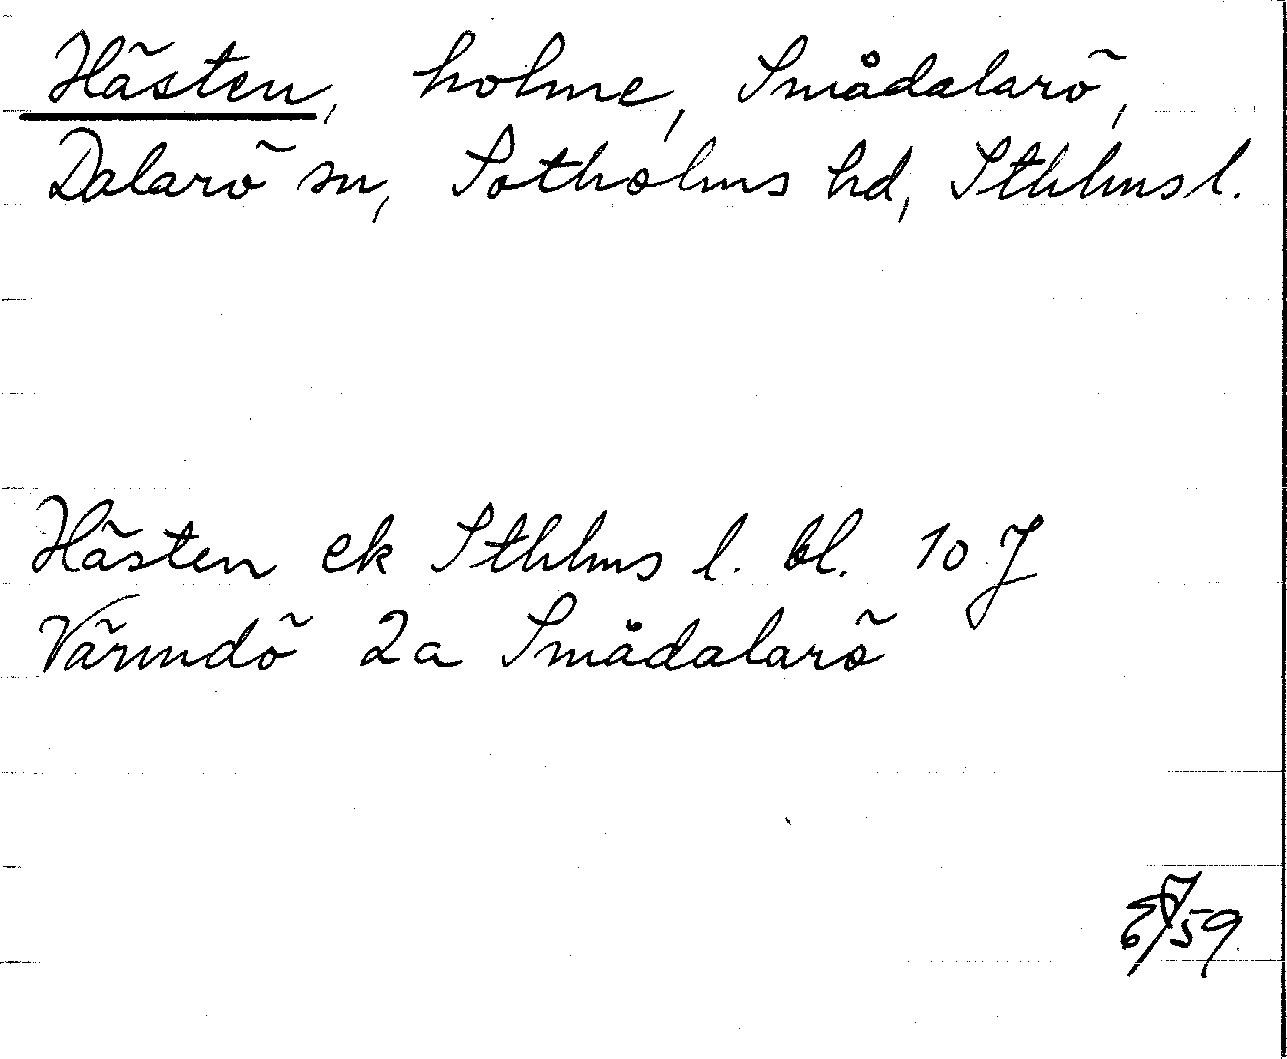 Hästen, holme, Smådalarö,
Dalarö sn, Sotholms hd, Sthlms l.
Hästen ek Sthlms l. bl. 10 J
Värmdö 2a Smådalarö
/59